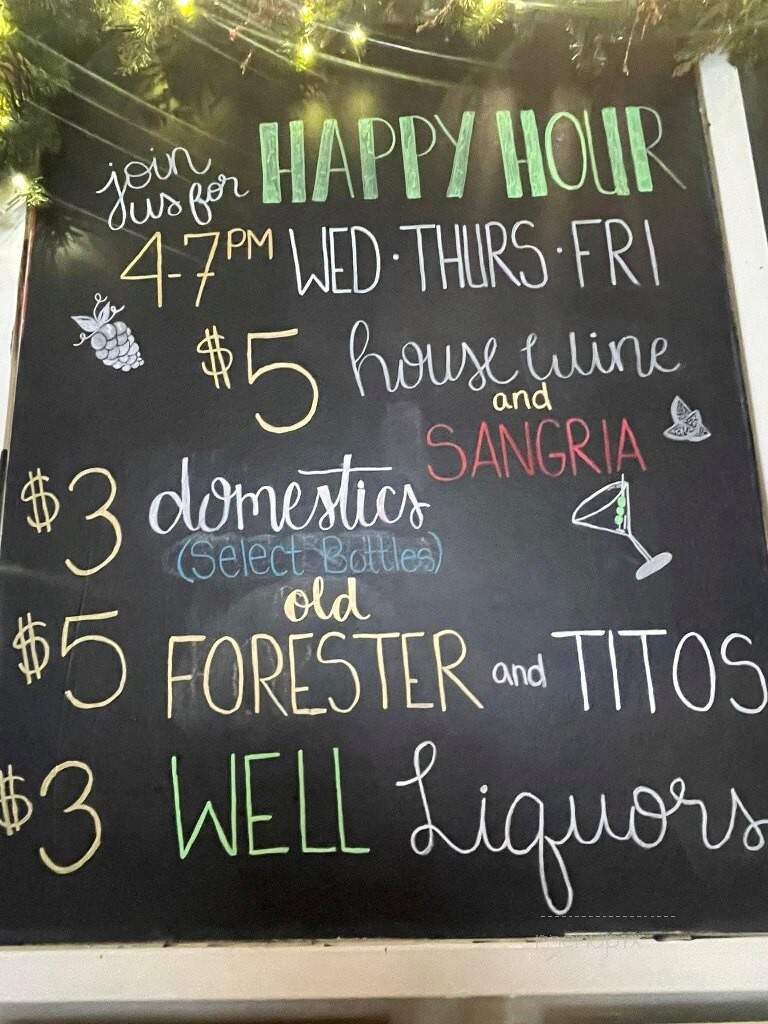 join us for HAPPY HOUR
4-7PM WED · THURS · FRI
$5 house wine
and
SANGRIA
$3 domestics
(Select Bottles)
old
$5 FORESTER and TITOS
$3 WELL Liquors